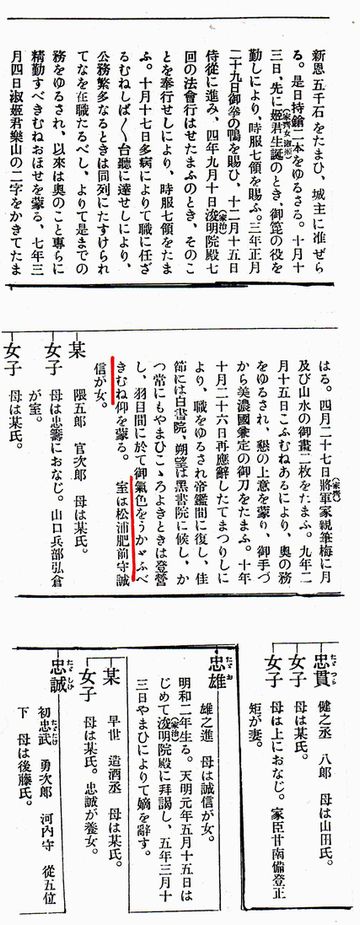 新恩五千石をたまひ、城主に准ぜら
る。是日持鎗二本をゆるさる。十月十
三日、先に姬君生誕のとき、御箆の役を
勤しにより、時服七領を賜ふ。三年正月
二十九日御拳の鴨を賜ひ、十二月十五日
侍從に進み、四年九月十日浚明院殿七
回の法會行はせたまはふのとき、そのこ
とを奉行せしにより、時服七領をたま
ふ。十月十七日多病によりて職に任ざ
るむねしば〳〵台聽に達せしにより、
公務繁多なるときは同列にたすけられ
てなを在職たるべし、よりて是までの
務をゆるされ、以來は奧のこと專らに
精勤すべきむねおほせを蒙る、七年三
月四日淑姬君樂山の二字をかきてたま
はる。四月二十七日將軍家親筆梅に月
及び山水の御畫二枚をたまふ。九年二
月十五日こふむねあるにより、奧の務
をゆるされ、懇の上意を蒙り、御手づ
から美濃國兼定の御刀をたまふ。十年
十月二十六日再應辭したてまつりしに
より、職をゆるされ帝鑑間に復し、佳
節には白書院、朔望は黑書院に候し、か
つ常にもやまひこゝろよきときは登營
し、羽目間に於て御氣色をうかゞふべ
きむね仰を蒙る。 室は松浦肥前守誠
信が女。
某 隈五郎 官次郎 母は某氏。
女子 母は忠籌におなじ。山口兵部弘倉
が室。
女子 母は某氏。
忠貫 健之丞 八郎 母は山田氏。
女子 母は某氏。
女子 母は上におなじ。家臣甘南備登正
矩が妻。
忠雄 雄之進 母は誠信が女。
明和二年生る。天明元年五月十五日は
じめて浚明院殿に拜謁し、五年三月十
三日やまひによりて嫡を辭す。
某 早世 造酒丞 母は某氏。
女子 母は某氏。忠誠が養女。
忠誠 初忠武 勇次郎 河內守 從五位
下 母は後藤氏。